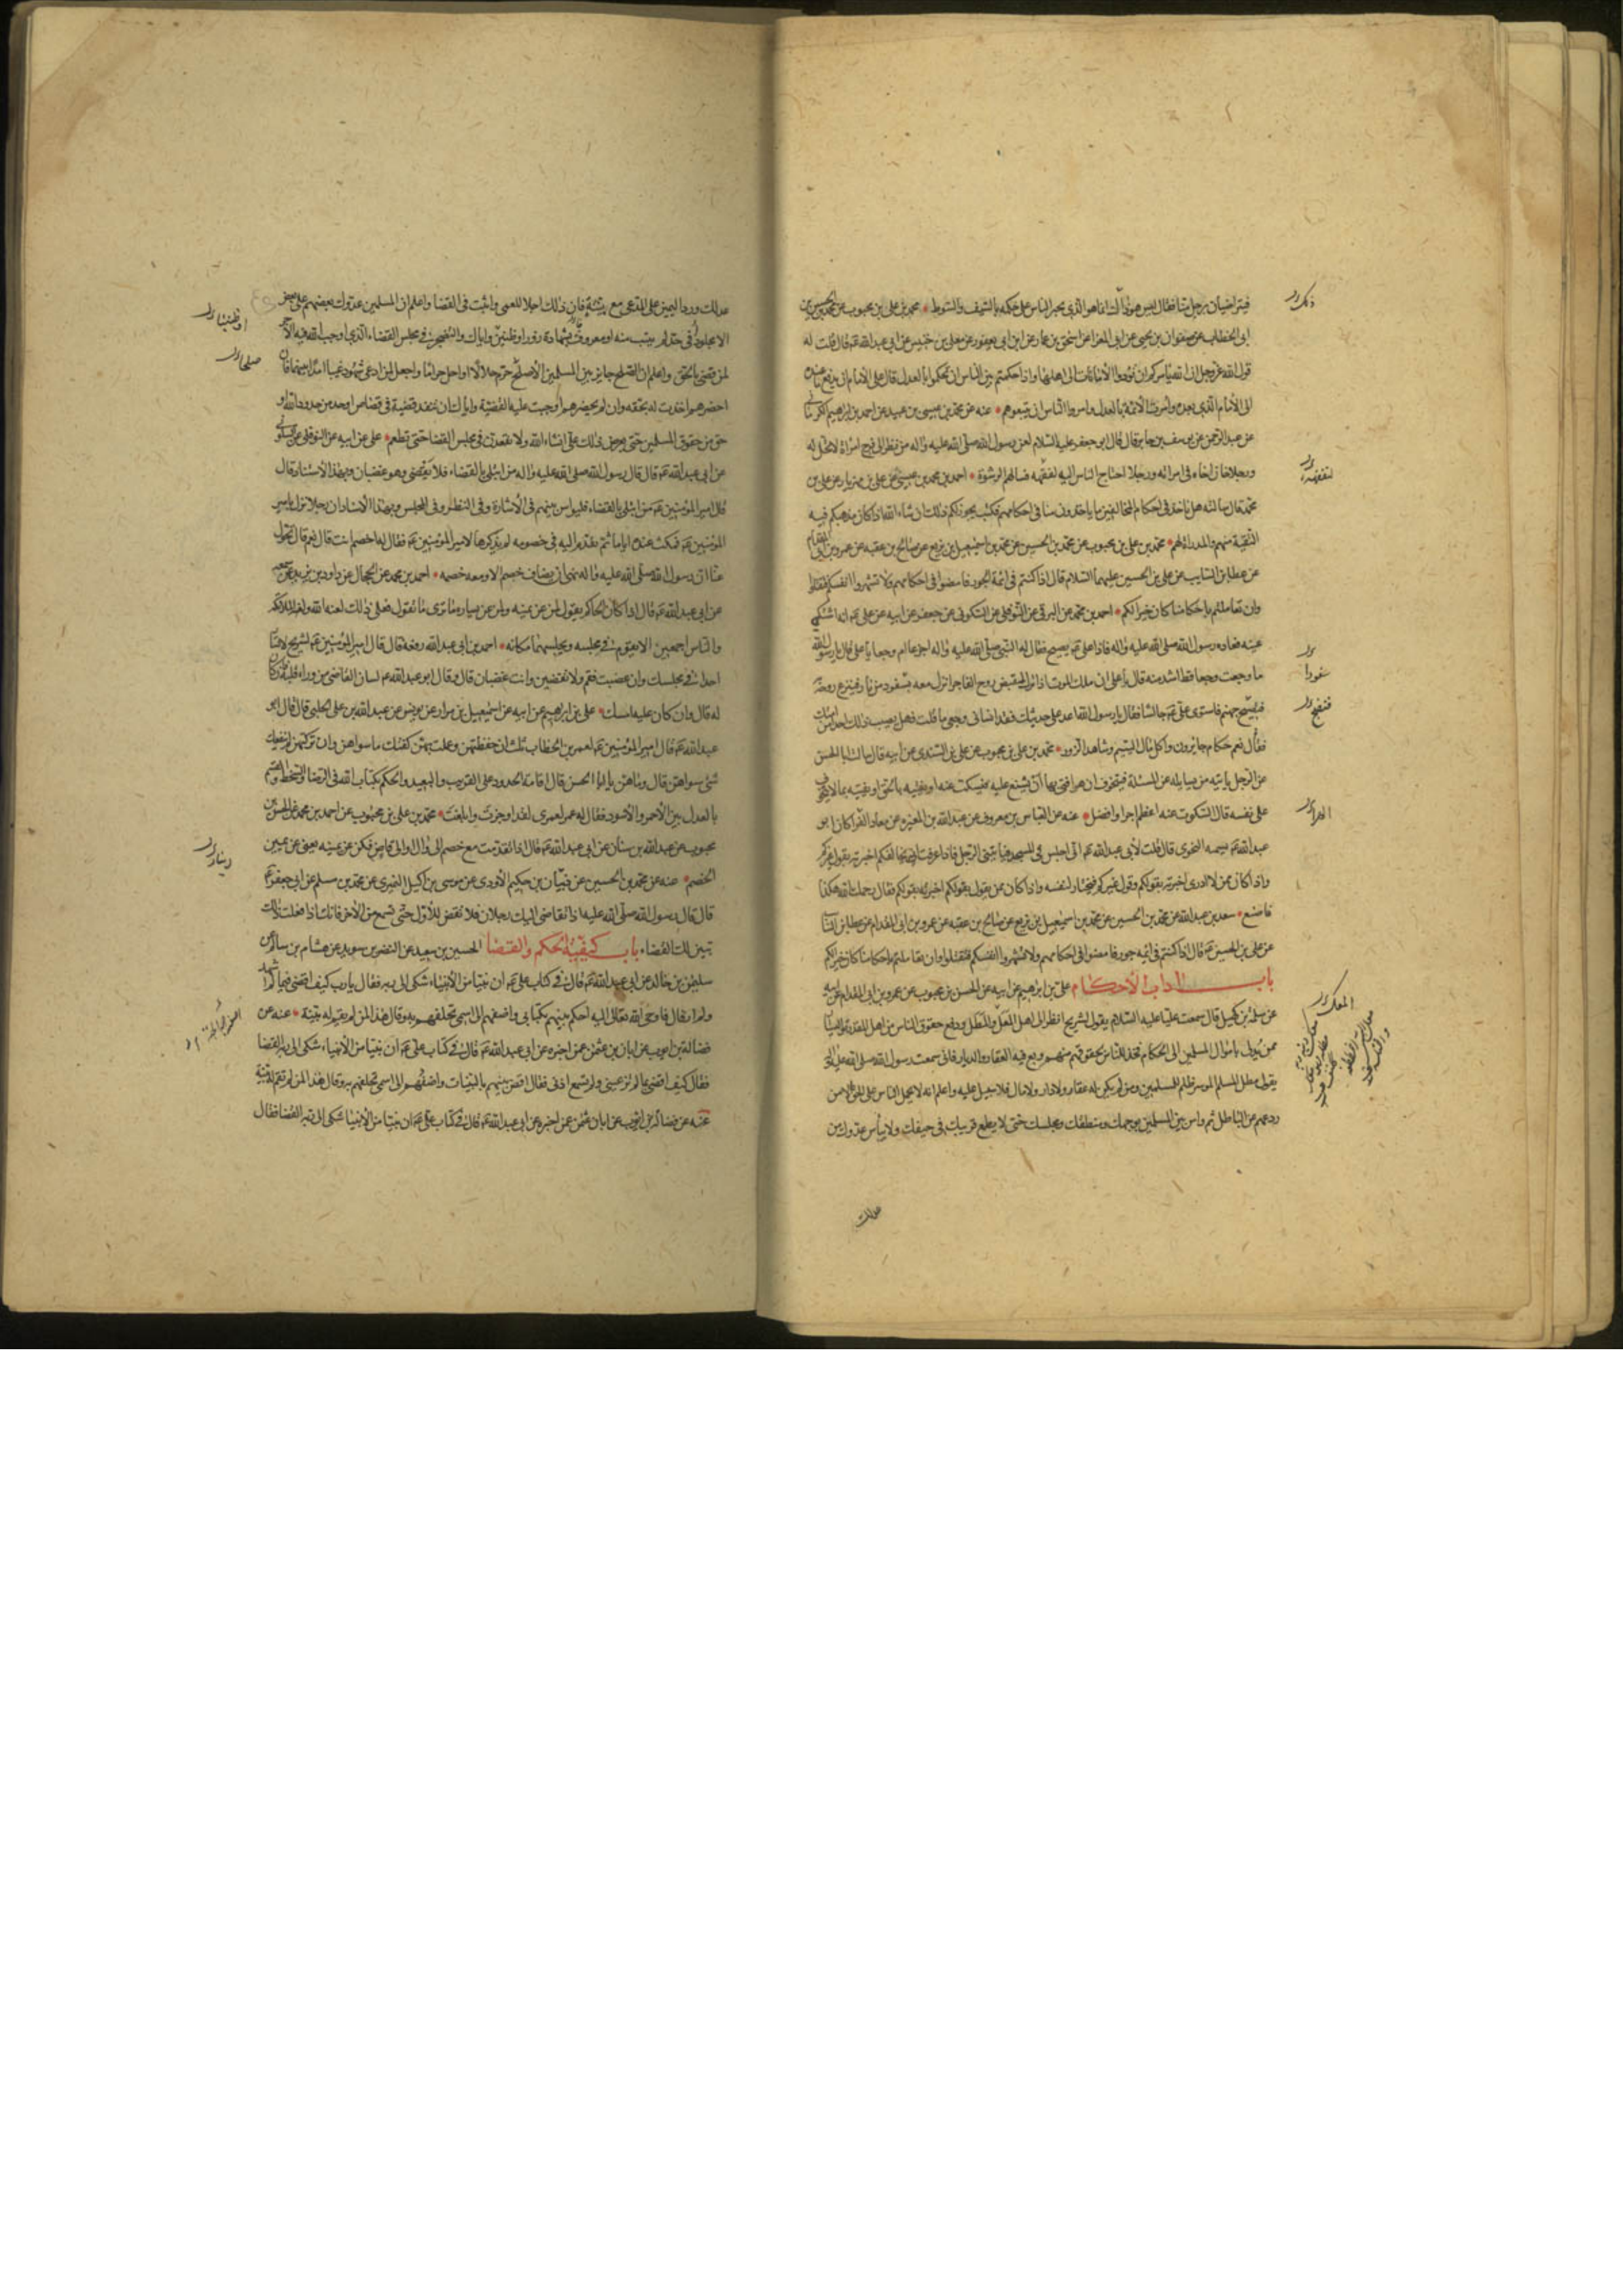 فيتراضيان برجل منا فقال ليس هو ذاك انما هو الذي يجبر الناس على حكمه بالسيف والسوط محمد بن علي بن محبوب عن محمد بن الحسين بن
ابي الخطاب عن صفوان بن يحيى عن ابي المغرا عن اسحق بن عمار عن ابن ابي يعفور عن معلى بن خنيس عن ابي عبد الله ع قال قلت له
قول الله عز وجل ان الله يامركم ان تؤدوا الأمانات الى اهلها واذا حكمتم بين الناس ان تحكموا بالعدل قال على الامام ان يدفع ما عنده
الى الأمام الذي بعده وامرت الأئمة بالعدل وامروا الناس ان يتبعوهم عنه عن محمد بن عيسى بن عبيد عن احمد بن ابراهيم
عن عبد الرحمن عن يوسف بن جابر قال قال ابو جعفر عليه السلام لعن رسول الله صلى الله عليه واله من نظر الى فرج امراة لا تحل له
ورجلا خان اخاه في امراته ورجلا احتاج الناس اليه لفقهه فسالهم الرشوة احمد بن محمد بن عيسى عن علي بن مهزيار عن علي بن
محمد قال سالته هل ناخذ في احكام المخالفين ما ياخذون منا في احكامهم فكتب يجوز لكم ذلك ان شاء الله اذا كان مذهبكم فيه
التقية منهم والمداراة لهم محمد بن علي بن محبوب عن محمد بن الحسين عن محمد بن اسمعيل بن بزيع عن صالح بن عقبه عن عمرو بن ابي المقدام
عن عطا بن السايب عن علي بن الحسين عليهما السلام قال اذا كنتم في ائمة الجور فامضوا في احكامهم ولا تشهروا انفسكم فتقتلوا
وان تعاملتم باحكامنا كان خيرا لكم احمد بن محمد عن البرقي عن النوفلي عن السكوني عن جعفر عن ابيه عن علي ع انه اشتكى
عينه فعاده رسول الله صلى الله عليه واله فاذا علي ع يصيح فقال له النبي صلى الله عليه واله اجزعا ام وجعا يا علي قال يا رسول الله
ما وجعت وجعا قط اشد منه قال يا علي ان ملك الموت اذا نزل ليقبض روح الفاجر انزل معه بسفود من نار فينزع روحه
فتصيح جهنم فاستوى علي ع جالسا فقال يا رسول الله اعد علي حديثك فقد انساني وجعي ما قلت فهل يصيب ذلك احدا من امتك
فقال نعم حكام جايرون واكل مال اليتيم وشاهد الزور محمد بن علي بن محبوب عن علي بن السندي عن ابيه قال سالت ابا الحسن
عن الرجل ياتيه من يساله عن المسئلة فيتخوف ان هو افتى بها ان يشنع عليه فيسكت عنه او يفتيه بالحق او يفتيه بما لا يتخوف
على نفسه قال السكوت عنه اعظم اجرا وافضل عنه عن العباس بن معروف عن عبد الله بن المغيره عن معاذ الفرا كان ابو
عبد الله ع يسمه النحوي قال قلت لأبي عبد الله ع اني اجلس في المسجد فياتيني الرجل فاذا عرفت انه يخالفكم اخبرته بقول غيركم
واذا كان ممن لا ادري اخبرته بقولكم وقول غيركم فيختار لنفسه واذا كان ممن يقول بقولكم اخبرته بقولكم فقال رحمك الله هكذا
فاصنع سعد بن عبد الله عن محمد بن الحسين عن محمد بن اسمعيل بن بزيع عن صالح بن عقبه عن عمرو بن ابي المقدام عن عطا بن السايب
عن علي بن الحسين ع قال اذا كنتم في ائمه جور فامضوا في احكامهم ولا تشهروا انفسكم فتقتلوا وان تعاملتم باحكامنا كان خيرا لكم
باب اداب الأحكام علي بن ابرهيم عن ابيه عن الحسن بن محبوب عن عمرو بن ابي المقدام عن ابيه
عن سلمة بن كهيل قال سمعت عليا عليه السلام يقول لشريح انظر الى اهل المعل والمطل ودفع حقوق الناس من اهل المقدرة واليسار
ممن يدلى باموال المسلمين الى الحكام فخذ للناس بحقوقهم منهم وبع فيه العقار والديار فاني سمعت رسول الله صلى الله عليه واله
يقول مطل المسلم الموسر ظلم للمسلمين ومن لم يكن له عقار ولا دار ولا مال فلا سبيل عليه واعلم انه لا يحمل الناس على الحق الا من
ردعهم عن الباطل ثم واس بين المسلمين بوجهك ومنطقك ومجلسك حتى لا يطمع قريبك في حيفك ولا ييأس عدوك من
عدلك
عدلك ورد اليمين على المدعى مع بينته فان ذلك اجلا للعمى واثبت في القضا واعلم ان المسلمين عدول بعضهم على بعض
الا مجلودا في حد لم يتب منه او معروف بشهادة زور او ظنين واياك والتضجر في مجلس القضاء الذي اوجب الله فيه الأجر
لمن قضى بالحق واعلم ان الصلح جايز بين المسلمين الأ صلح حرم حلالا او احل حراما واجعل لمن ادعى شهودا غيبا امدا بينهما فان
احضرهم اخذت له بحقه وان لم يحضرهم اوجبت عليه القضية واياك ان تنفذ قضية في قصاص او حد من حدود الله او
حق من حقوق المسلمين حتى تعرض ذلك علي انشاء الله ولا تقعدن في مجلس القضا حتى تطعم علي عن ابيه عن النوفلي عن السكوني
عن ابي عبد الله ع قال قال رسول الله صلى الله عليه واله من ابتلي بالقضاء فلا يقضي وهو غضبان وبهذا الأسناد قال
قال امير المؤمنين ع من ابتلي بالقضاء فليواس بينهم في الأشارة وفي النظر وفي المجلس وبهذا الأسناد ان رجلا نزل بامير
المؤمنين ع فمكث عنده اياما ثم تقدم اليه في خصومه لم يذكرها لامير المؤمنين ع فقال له اخصم انت قال نعم قال تحول
عنا ان رسول الله صلى الله عليه واله نهى ان يضاف خصم الا ومعه خصمه احمد بن محمد عن الحجال عن داود بن يزيد عمن سمعه
عن ابي عبد الله ع قال اذا كان الحاكم يقول لمن عن يمينه ولمن عن يساره ما ترى ما تقول فعلى ذلك لعنة الله والملائكه
والناس اجمعين الا يقوم من مجلسه ويجلسهما مكانه احمد بن ابي عبد الله رفعه قال قال امير المؤمنين ع لشريح لا تسار
احدا في مجلسك وان غضبت فقم ولا تقضين وانت غضبان قال وقال ابو عبد الله ع لسان القاضي من وراء قلبه فان كان
له قال وان كان عليه امسك علي بن ابراهيم عن ابيه عن اسمعيل بن مرار عن يونس عن عبد الله بن علي الحلبي قال قال ابو
عبد الله ع قال امير المؤمنين ع لعمر بن الخطاب ثلث ان حفظتهن وعملت بهن كفتك ما سواهن وان تركتهن لم ينفعك
شئ سواهن قال وما هن يا ابا الحسن قال اقامة الحدود على القريب والبعيد والحكم بكتاب الله في الرضا والسخط والقسم
بالعدل بين الأحمر والأسود فقال له عمر لعمري لقد اوجزت وابلغت محمد بن علي بن محبوب عن احمد بن محمد عن الحسن بن
محبوب عن عبد الله بن سنان عن ابي عبد الله ع قال اذا تقدمت مع خصم الى وال او الى قاض فكن عن يمينه يعني عن يمين
الخصم عنه عن محمد بن الحسين عن ذبيان بن حكيم الأودي عن موسى بن اكيل النميري عن محمد بن مسلم عن ابي جعفر ع
قال قال رسول الله صلى الله عليه اذا تقاضى اليك رجلان فلا تقض للأول حتى تسمع من الأخر فانك اذا فعلت ذلك
تبين لك القضاء باب كيفية الحكم والقضا الحسين بن سعيد عن النضر بن سويد عن هشام بن سالم عن
سليمن بن خالد عن ابي عبد الله ع قال في كتاب علي ع ان نبيا من الأنبياء شكى الى ربه فقال يا رب كيف اقضي فيما لم اشهد
ولم ار قال فاوحى الله تعالى اليه احكم بينهم بكتابي واضفهم الى اسمي تحلفهم به وقال هذا لمن لم يقم له بينة عنه عن
فضالة بن ايوب عن ابان بن عثمن عمن اخبره عن ابي عبد الله ع قال في كتاب علي ع ان نبيا من الأنبياء شكى الى ربه القضا
فقال كيف اقضي بما لم تر عيني ولم تسمع اذني فقال اقض بينهم بالبينات واضفهم الى اسمي تحلفهم به وقال هذا لمن لم تقم له بينة
عنه عن فضالة بن ايوب عن ابان عثمن عمن اخبره عن ابي عبد الله ع قال في كتاب علي ع ان نبيا من الأنبيا شكى الى ربه القضا فقال